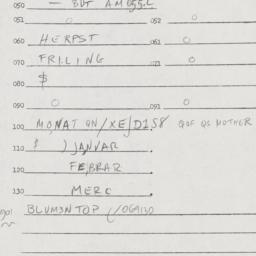 050 — BUT
051 O 052 O
060 HERPST 061 O
070 FRILING 071 O
$
080
090 O 091 O
100 MONAT QN/XE/D158 QOF QS MOTHER
110 $ ) JANVAR
120 FEBRAR
130 MERC
BLUMONTOP